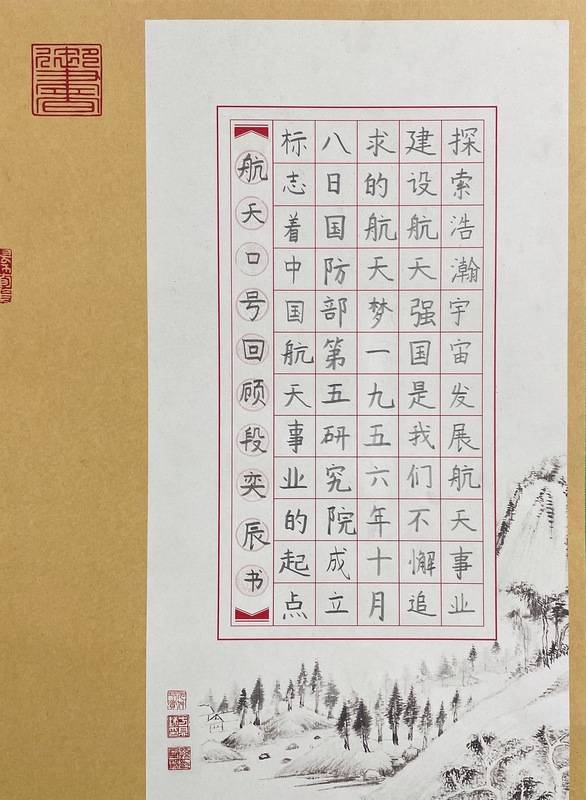 探索浩瀚宇宙发展航天事业
建设航天强国是我们不懈追
求的航天梦一九五六年十月
八日国防部第五研究院成立
标志着中国航天事业的起点
航天口号回顾段奕辰书